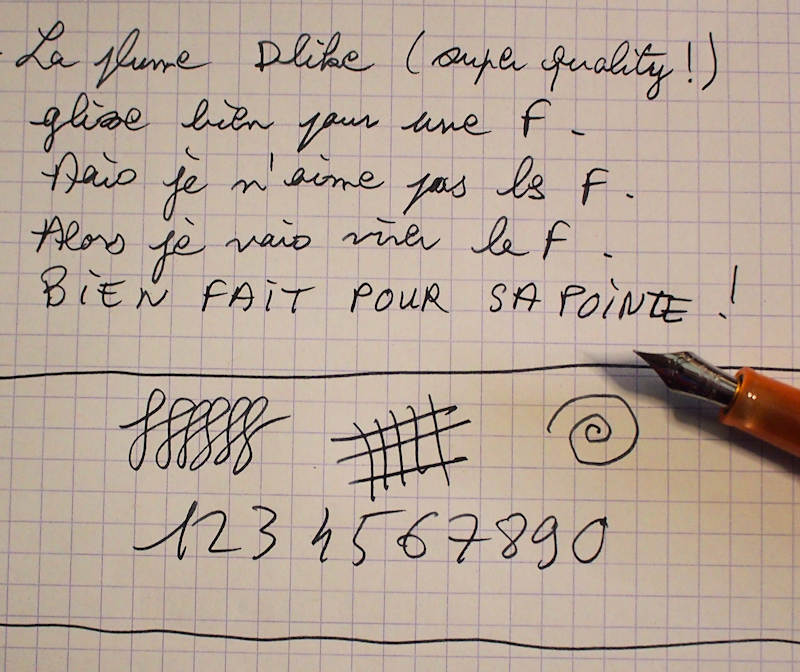 La plume Dlike (super quality!)
glisse bien pour une F.
Mais je n'aime pas les F.
Alors je vais virer le F.
BIEN FAIT POUR SA POINTE !
1 2 3 4 5 6 7 8 9 0